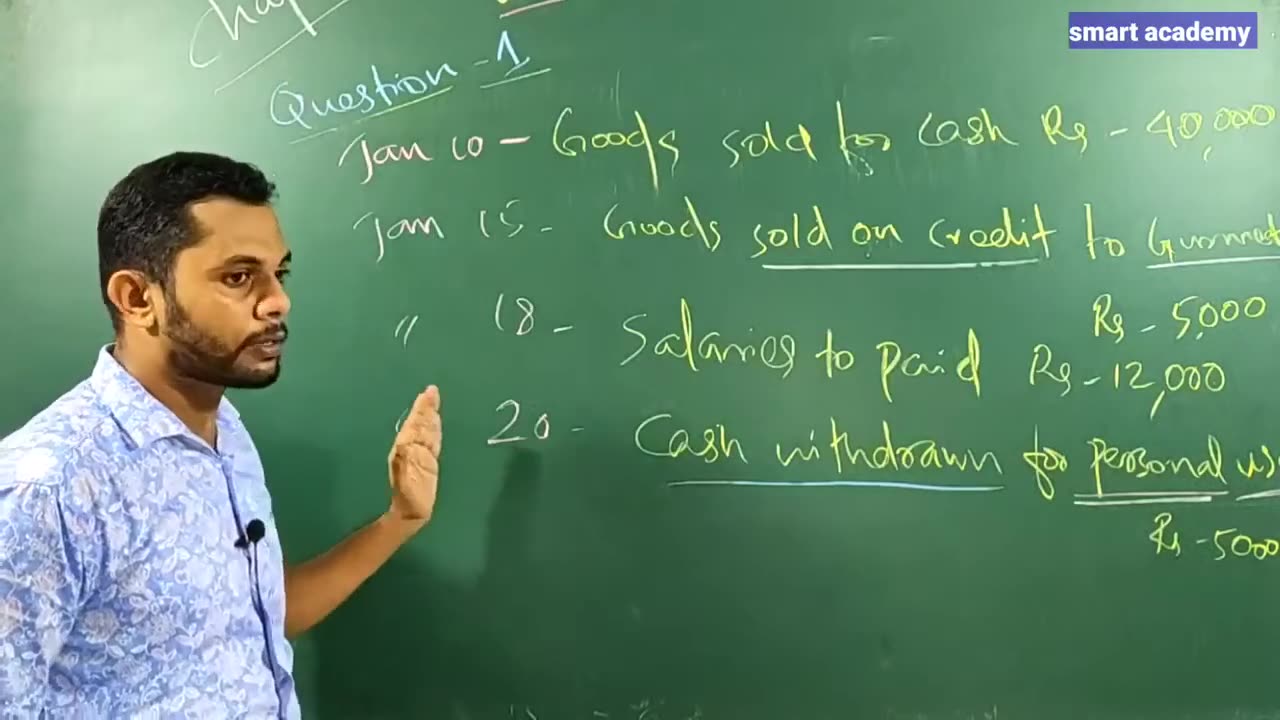 smart academy
Question - 1
Jan 10 - Goods sold for cash Rs - 40,000
Jan 15 - Goods sold on credit to
Rs - 5,000
" 18 - Salaries to paid Rs - 12,000
20 - Cash withdrawn for personal
Rs - 5000